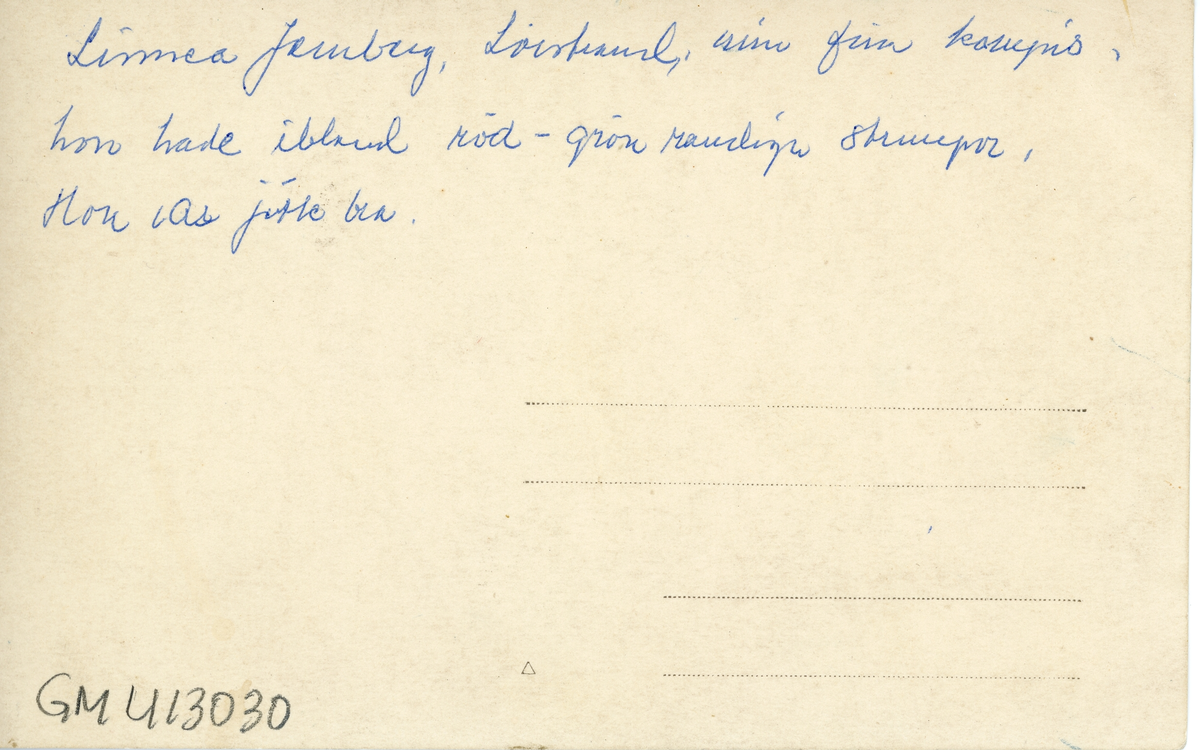 Linnea Jernberg, Lövstrand, min fina kompis,
hon hade ibland röd-grön randiga strumpor,
Hon var jätte bra.
GM 413030